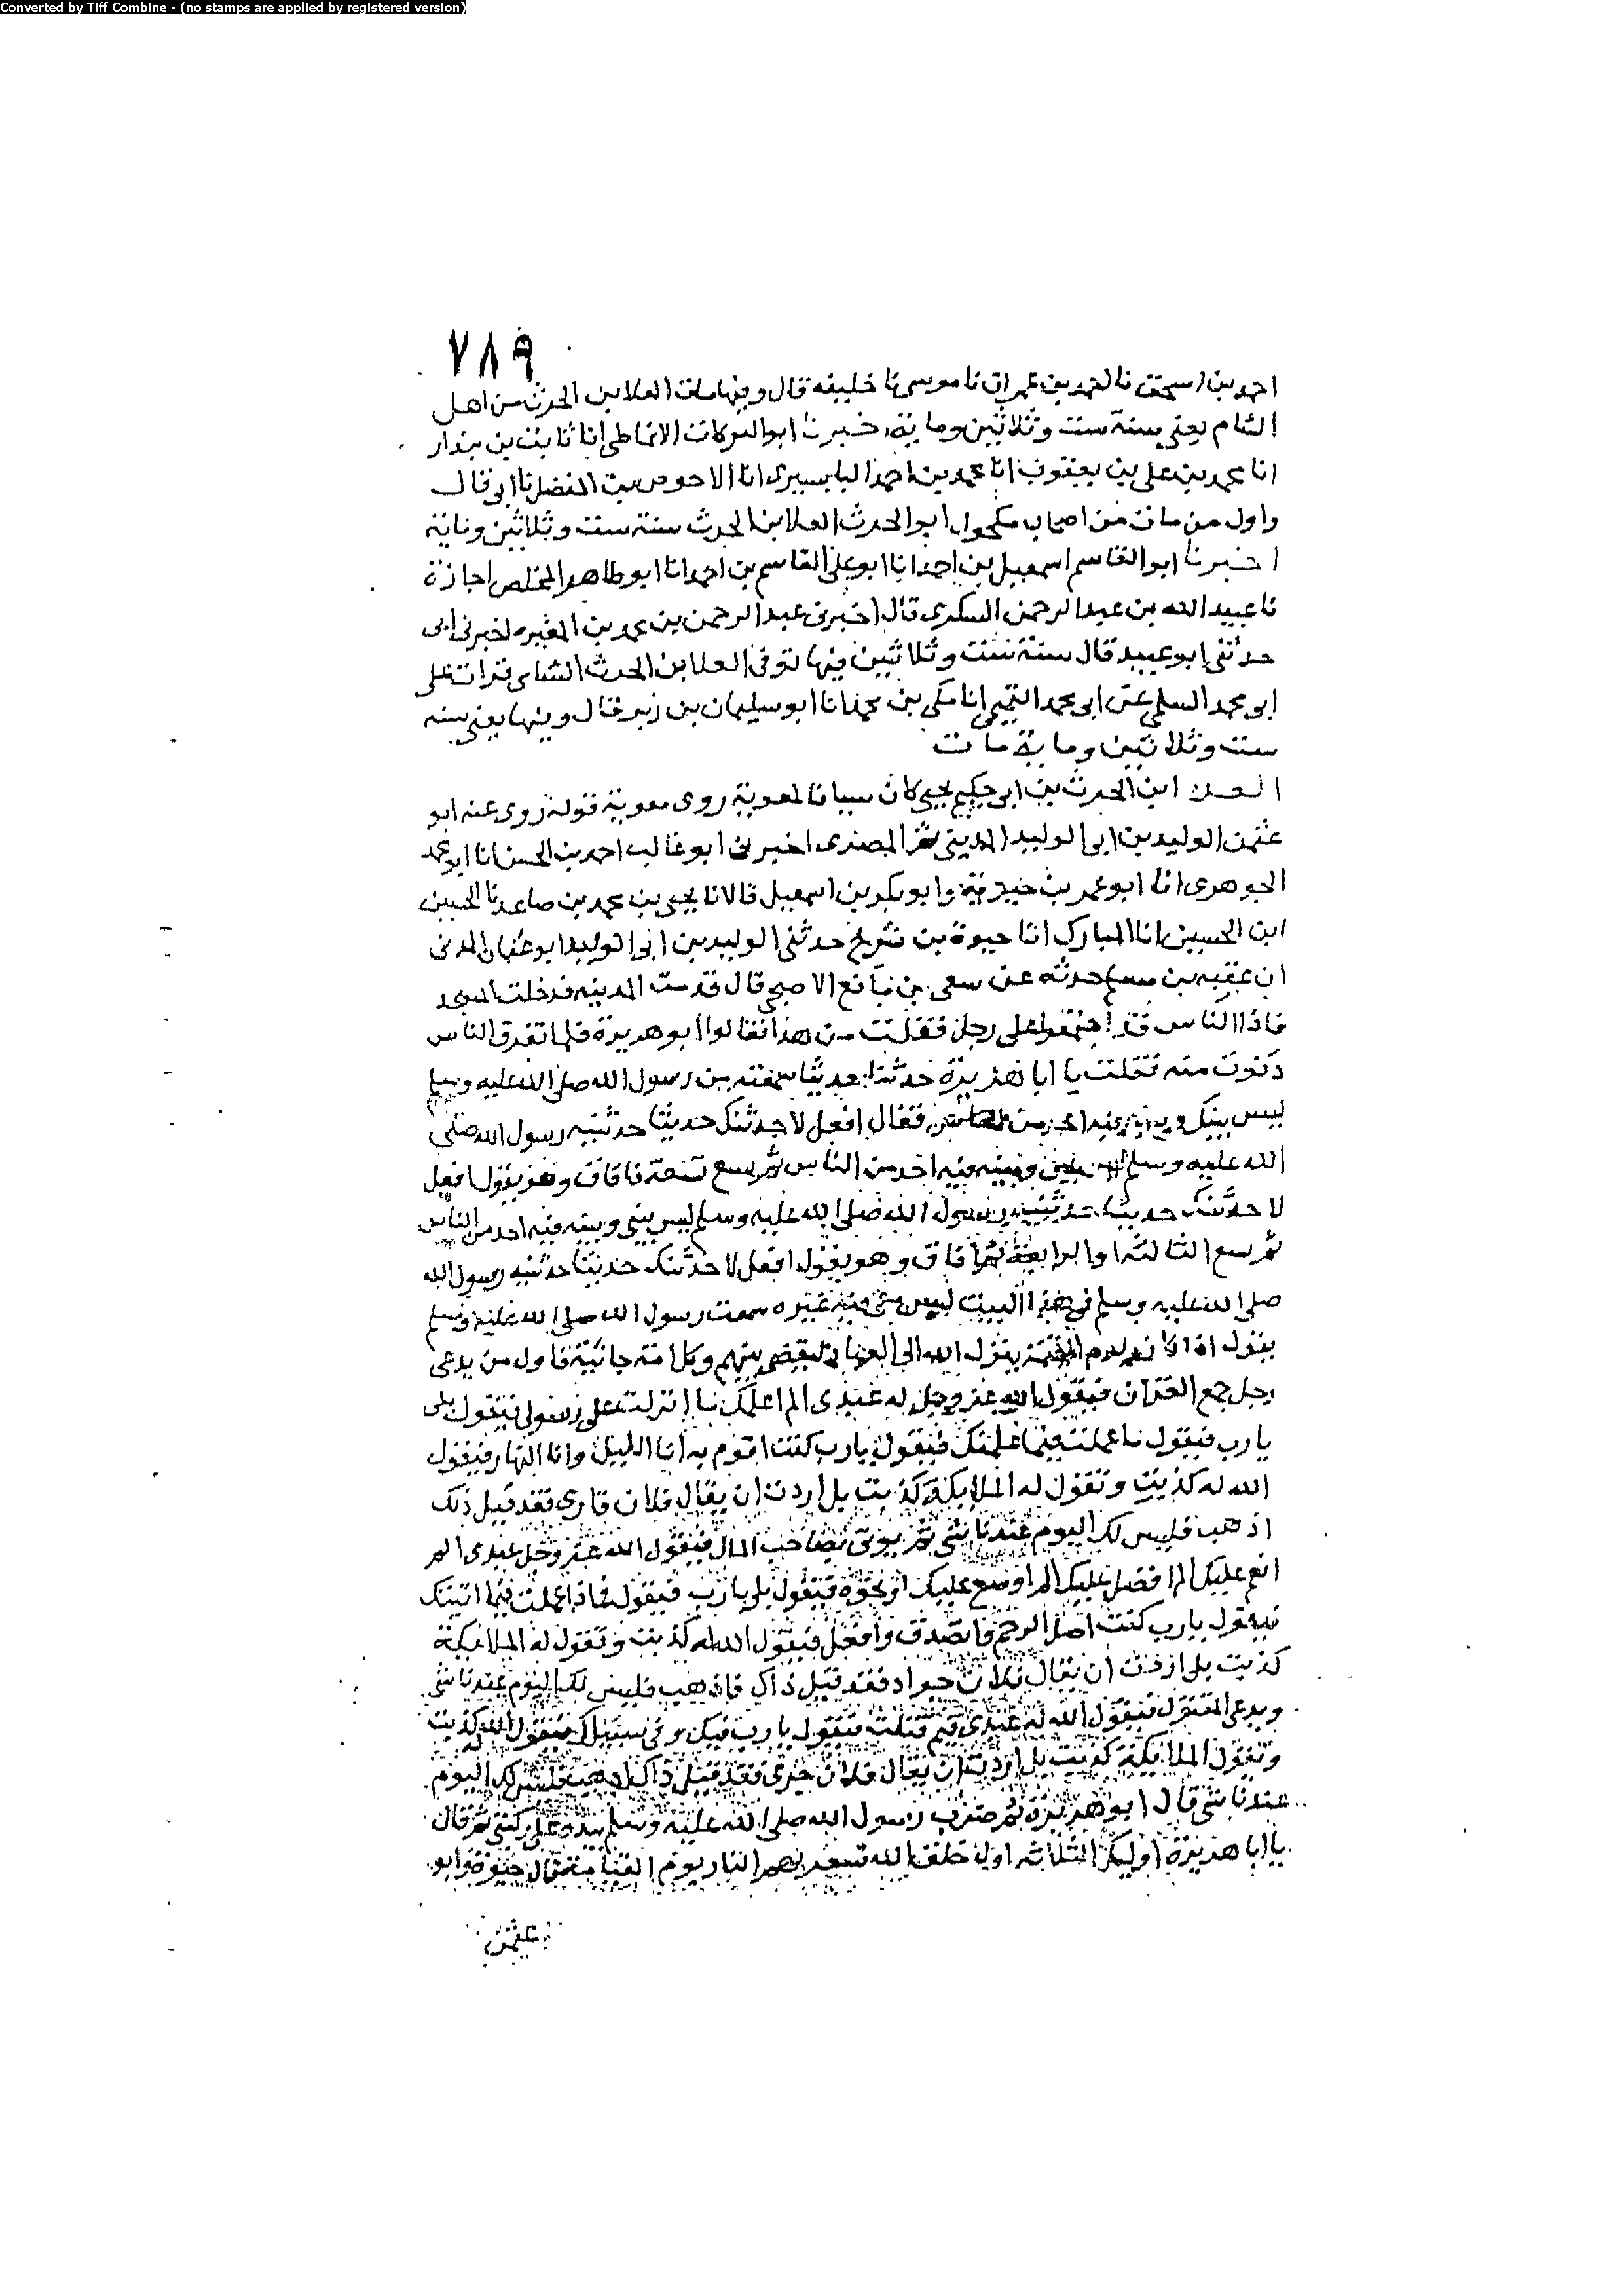 Converted by Tiff Combine - (no stamps are applied by registered version)
٧٨٩
احمد بن اسحق نا احمد بن عمران نا موسى نا خليفه قال وفيها مات العلا بن الحرث من اهل
الشام يعني سنة ست وثلاثين وماية اخبرنا ابو البركات الانماطي انا ثابت بن بندار
انا محمد بن علي بن يعقوب انا محمد بن احمد البابسيري انا الاحوص بن المفضل نا ابي قال
واول من مات من اصحاب مكحول ابو الحرث العلا بن الحرث سنة ست وثلاثين وماية
اخبرنا ابو القاسم اسمعيل بن احمد انا ابو علي القاسم بن احمد انا ابو طاهر المخلص اجازة
نا عبيد الله بن عبد الرحمن السكري قال اخبرني عبد الرحمن بن محمد بن المغيره اخبرني ابي
حدثني ابو عبيد قال سنة ست وثلاثين فيها توفي العلا بن الحرث الشامي قرات على
ابي محمد السلمي عن ابي محمد التميمي انا مكي بن محمد انا ابو سليمان بن زبر قال وفيها يعني سنه
ست وثلاثين وماية مات
العلا ابن الحرث بن ابي حكيم يحيى كان سيافا لمعوية روى معوية قوله روى عنه ابو
عثمن الوليد بن ابي الوليد المديني ثم المصري اخبرنا ابو غالب احمد بن الحسن انا ابو محمد
الجوهري انا ابو عمر بن حيوية وابو بكر بن اسمعيل قالا نا يحيى بن محمد بن صاعد نا الحسين
ابن الحسين انا المبارك انا حيوة بن شريح حدثني الوليد بن ابي الوليد ابو عثمان المدني
ان عقبه بن مسلم حدثه عن سعي بن ماتع الاصبحي قال قدمت المدينه فدخلت المسجد
فاذا الناس قد اجتمعوا على رجل فقلت من هذا فقالوا ابو هريرة فلما تفرق الناس
دنوت منه فقلت يا ابا هريرة حدثنا حديثا سمعته من رسول الله صلى الله عليه وسلم
ليس بينك وبينه فيه احد من الناس فقال افعل لاحدثنك حديثا حدثنيه رسول الله صلى
الله عليه وسلم ليس بيني وبينه فيه احد من الناس ثم نسع نسعة فافاق وهو يقول افعل
لاحدثنك حديثا حدثنيه رسول الله صلى الله عليه وسلم ليس بيني وبينه فيه احد من الناس
ثم نسع الثالثة او الرابعة ثم افاق وهو يقول افعل لاحدثنك حديثا حدثنيه رسول الله
صلى الله عليه وسلم في هذا البيت ليس معي فيه غيره سمعت رسول الله صلى الله عليه وسلم
يقول اذا كان يوم القيمة ينزل الله الى العباد ليقضي بينهم وكل امة جاثية فاول من يدعى
رجل جمع القران فيقول الله عز وجل له عبدي الم اعلمك ما انزلت على رسولي فيقول بلى
يا رب فيقول ما عملت فيما علمتك فيقول يا رب كنت اقوم به انا الليل وانا النهار فيقول
الله له كذبت وتقول له الملايكة كذبت بل اردت ان يقال فلان قاري فقد قيل ذلك
اذهب فليس لك اليوم عندنا شي ثم يوتى بصاحب المال فيقول الله عز وجل عبدي الم
انعم عليك الم افضل عليك الم اوسع عليك او نحوه فيقول بلى يا رب فيقول فماذا عملت فيما اتيتك
فيقول يا رب كنت اصل الرحم واتصدق وافعل فيقول الله له كذبت وتقول له الملايكة
كذبت بل اردت ان يقال فلان جواد فقد قيل ذاك فاذهب فليس لك اليوم عندنا شي
ويدعى المقتول فيقول الله له عبدي فيم قتلت فيقول يا رب فيك وفي سبيلك فيقول الله له كذبت
وتقول الملايكة كذبت بل اردت ان يقال فلان جري فقد قيل ذاك اذهب فليس لك اليوم
عندنا شي قال ابو هريرة ثم ضرب رسول الله صلى الله عليه وسلم بيده على ركبتي ثم قال
يا ابا هريرة اوليك الثلاثه اول خلق الله تسعر بهم النار يوم القيامة قال حيوة وابو
عثمن